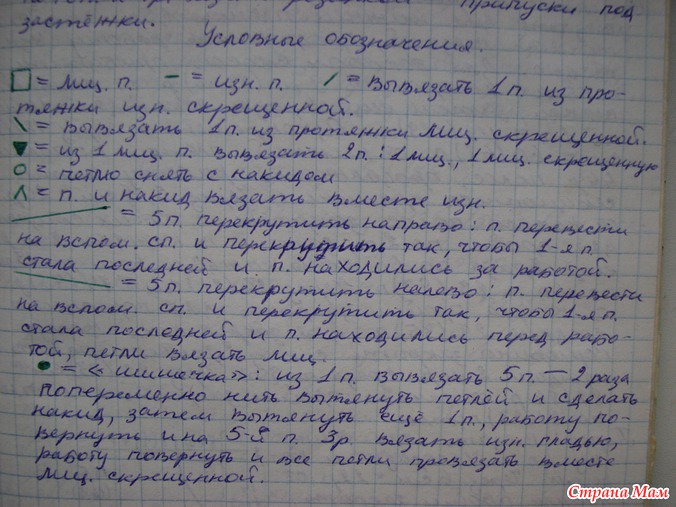 припуски под
застёжки.
Условные обозначения.
□ = лиц. п. – = изн. п. / = вывязать 1 п. из про-
тяжки изн. скрещенной.
\ = вывязать 1п. из протяжки лиц. скрещенной.
▼ = из 1 лиц. п. вывязать 2п.: 1 лиц., 1 лиц. скрещенную
○ = петлю снять с накидом
Λ = п. и накид вязать вместе изн.
= 5п. перекрутить направо: п. перевести
на вспом. сп. и перекрутить так, чтобы 1-я п.
стала последней и п. находились за работой.
= 5п. перекрутить налево: п. перевести
на вспом. сп. и перекрутить так, чтобы 1-я п.
стала последней и п. находились перед рабо-
той, петли вязать лиц.
● = «шишечка»: из 1 п. вывязать 5 п. – 2 раза
попеременно нить вытянуть петлёй и сделать
накид, затем вытянуть ещё 1п., работу по-
вернуть и на 5-й п. 3р. вязать изн. гладью,
работу повернуть и все петли провязать вместе
лиц. скрещенной.
Страна Мам